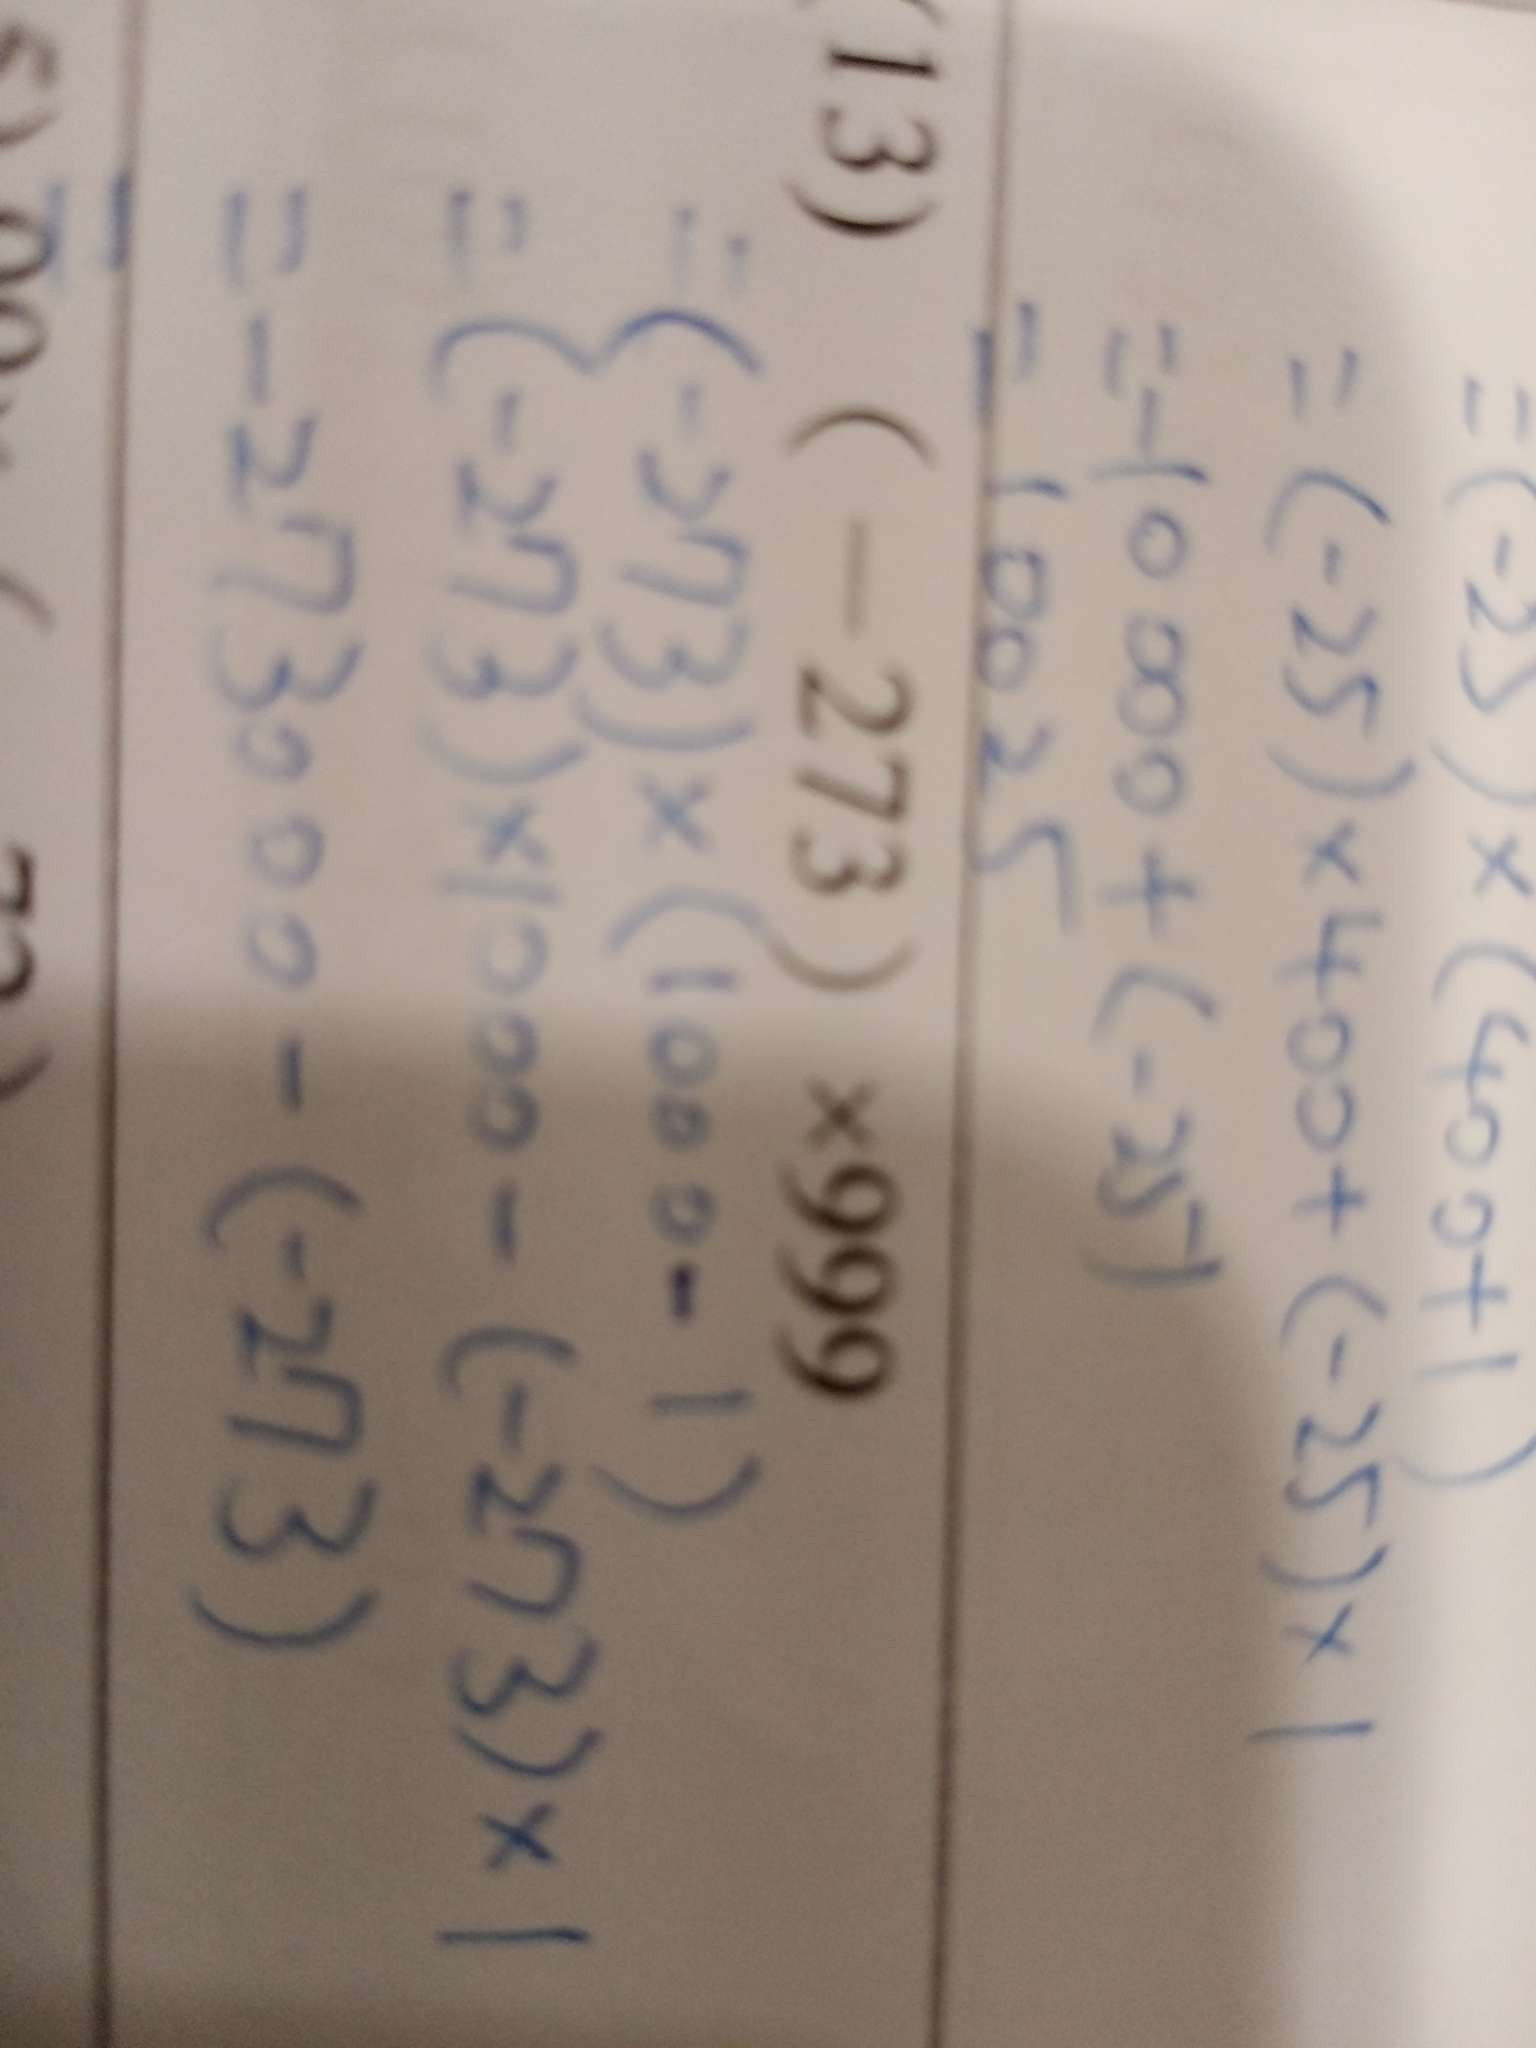 =(-25)×(400+1)
=(-25)×400+(-25)×1
=-10000+(-25)
=-10025
(13) (−273) ×999
=(-273)×(1000-1)
=(-273)×1000-(-273)×1
=-273000-(-273)